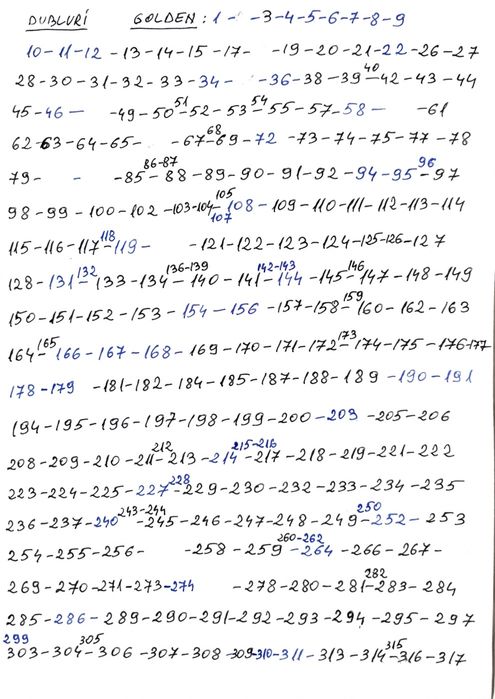 DUBLURI GOLDEN : 1 - -3-4-5-6-7-8-9
10-11-12 -13-14-15-17- -19-20-21-22-26-27
28-30-31-32-33-34- -36-38-39-40-42-43-44
45-46- -49-50-51-52-53-54-55-57-58- -61
62-63-64-65- -67-68-69-72 -73-74-75-77-78
79- - -85-86-87-88-89-90-91-92-94-95-96-97
98-99-100-102-103-104-105-107-108-109-110-111-112-113-114
115-116-117-118-119- -121-122-123-124-125-126-127
128-131-132-133-134-136-139-140-141-142-143-144-145-146-147-148-149
150-151-152-153-154-156-157-158-159-160-162-163
164-165-166-167-168-169-170-171-172-173-174-175-176-177
178-179 -181-182-184-185-187-188-189-190-191
194-195-196-197-198-199-200-203-205-206
208-209-210-211-212-213-214-215-216-217-218-219-221-222
223-224-225-227-228-229-230-232-233-234-235
236-237-240-243-244-245-246-247-248-249-250-252-253
254-255-256- -258-259-260-262-264-266-267-
269-270-271-273-274 -278-280-281-282-283-284
285-286-289-290-291-292-293-294-295-297
299
303-304-305-306-307-308-309-310-311-313-314-315-316-317